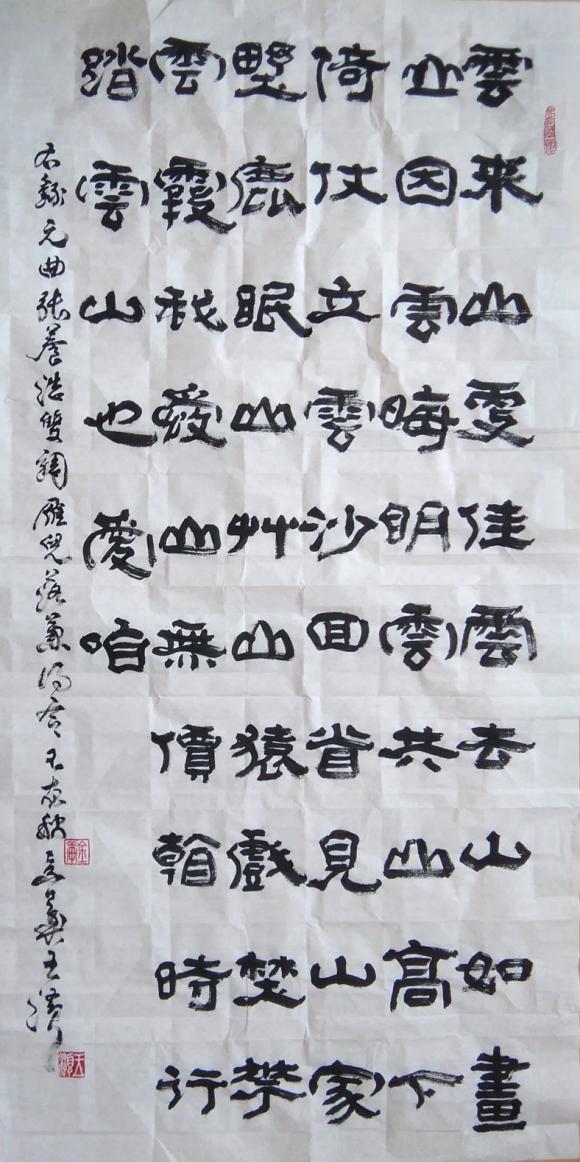 雲來山更佳雲去山如畫
山因雲晦明雲共山高下
倚仗立雲沙回首見山家
野鹿眠山艸山猿戲埜花
雲霞我愛山無價看時行
踏雲山也愛咱
右錄元曲張養浩雙調雁兒落兼得